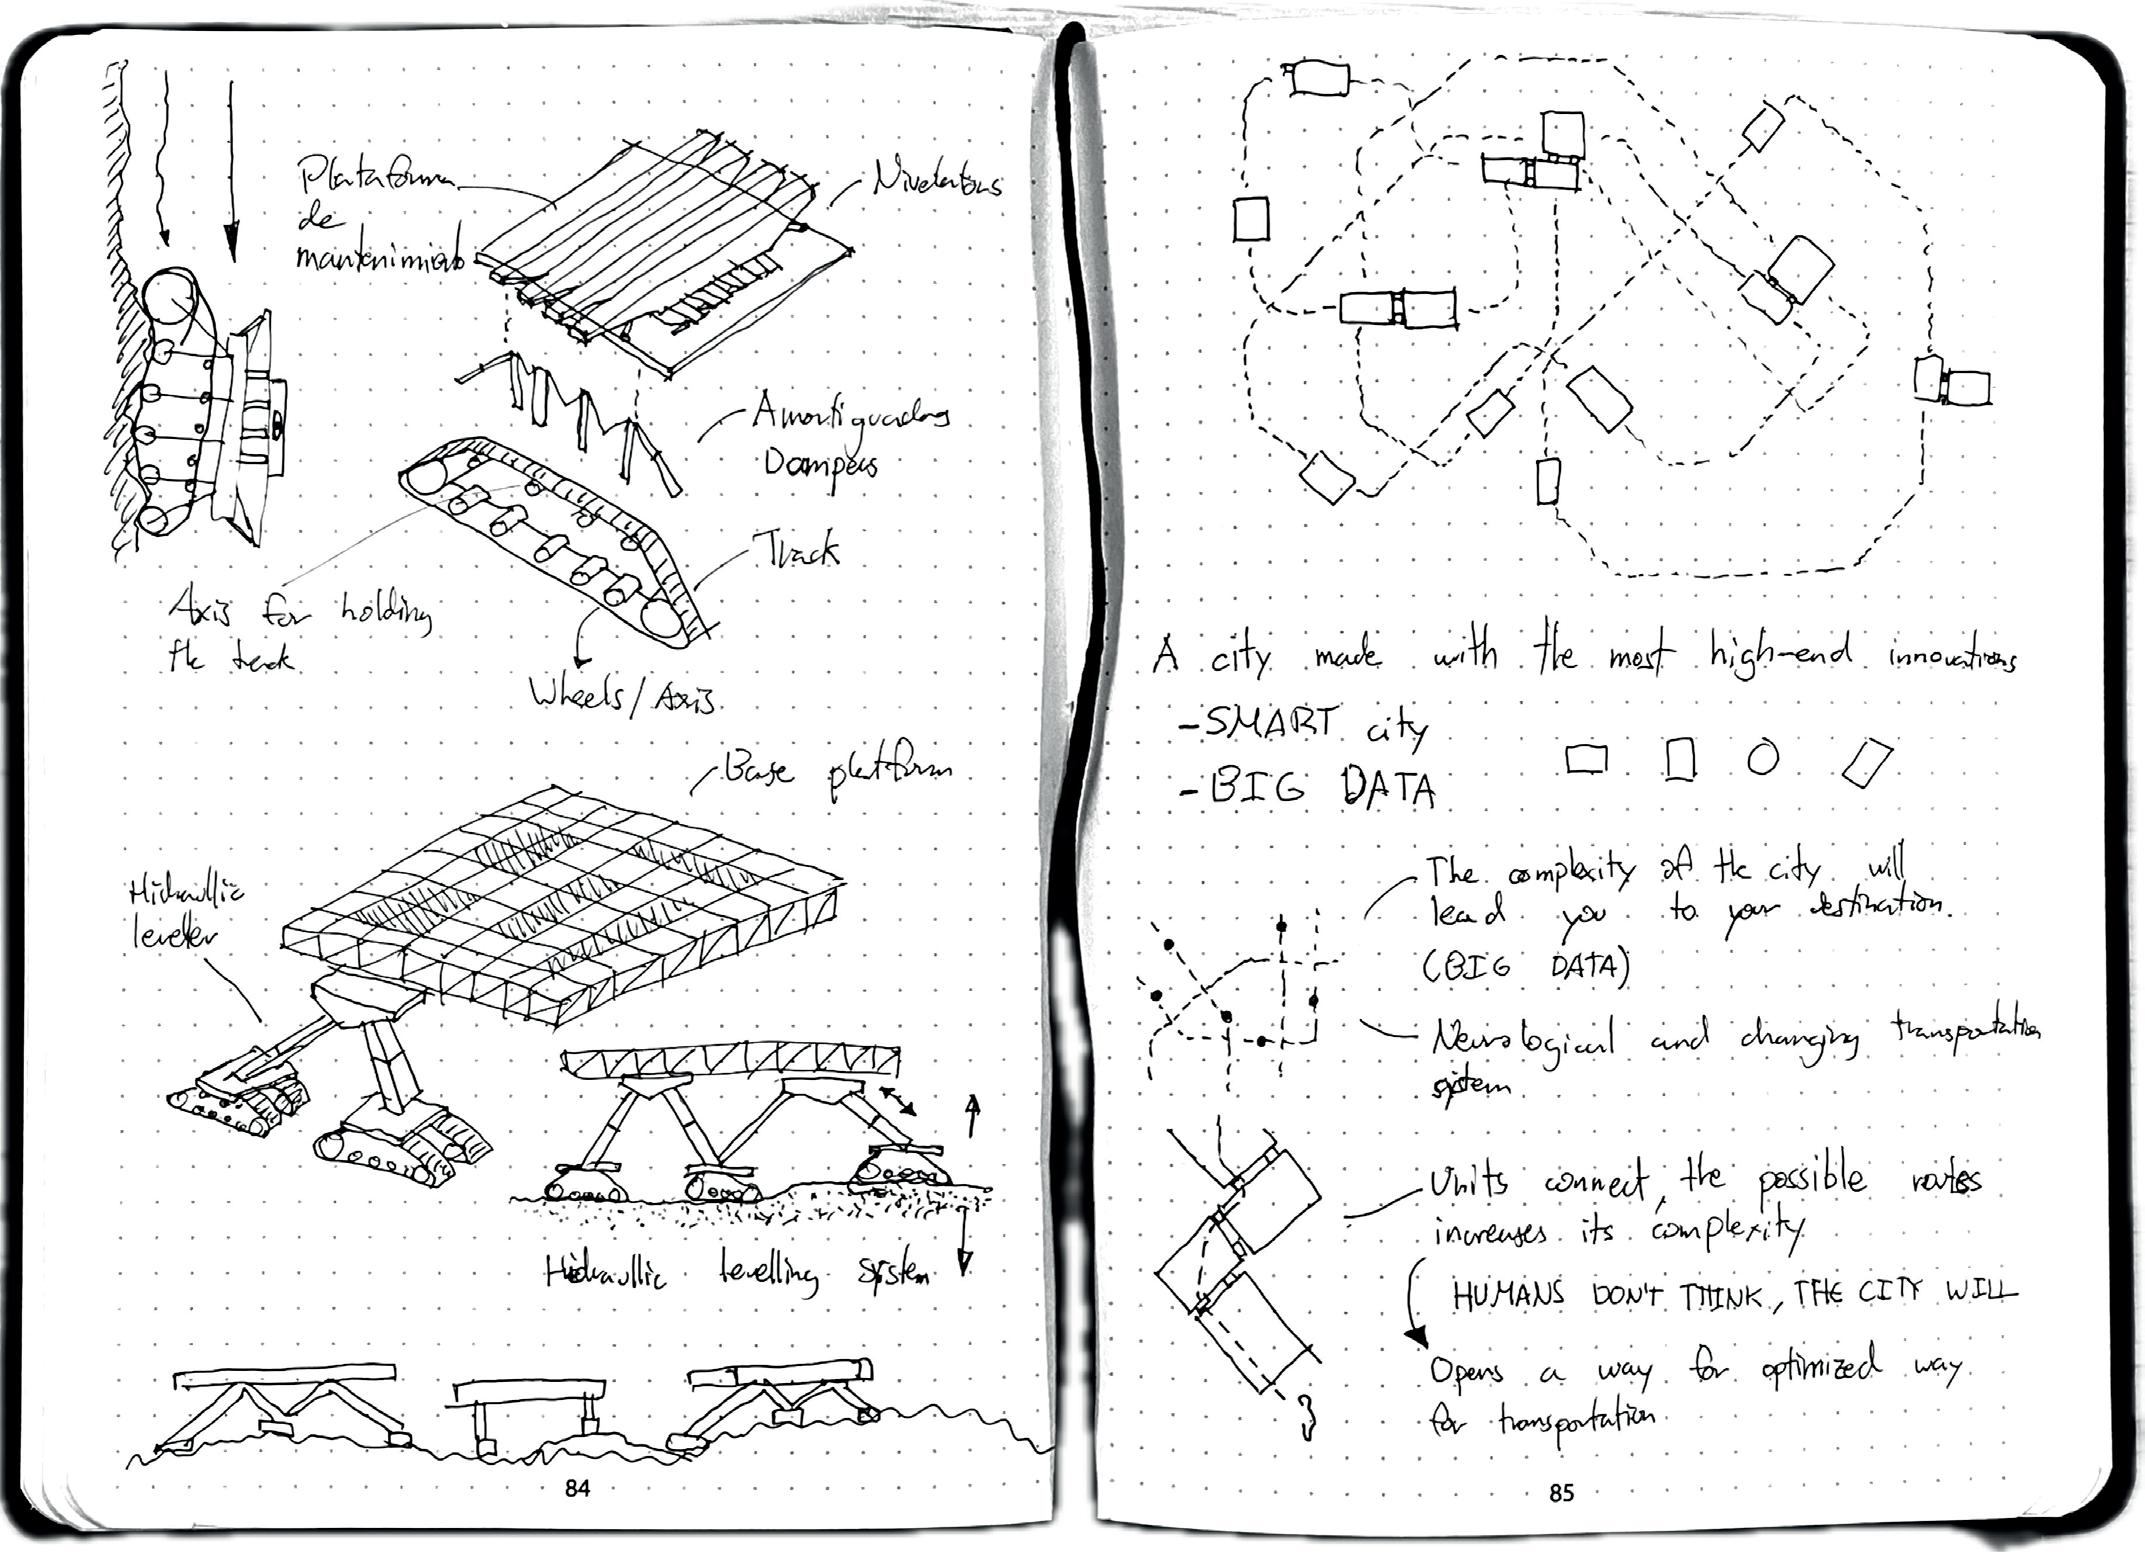 Plataforma
de
mantenimiento
Niveladores
Amortiguadores
Dampers
Track
Axis for holding
the track
Wheels/Axis
Base platform
Hidraullic
leveller
Hidraullic levelling system
84
A city made with the most high-end innovations
-SMART city
-BIG DATA
The complexity of the city will
lead you to your destination.
(BIG DATA)
Neurological and changing transportation
system
Units connect, the possible routes
increases its complexity
HUMANS DON'T THINK, THE CITY WILL
Opens a way for optimized way
for transportation
85